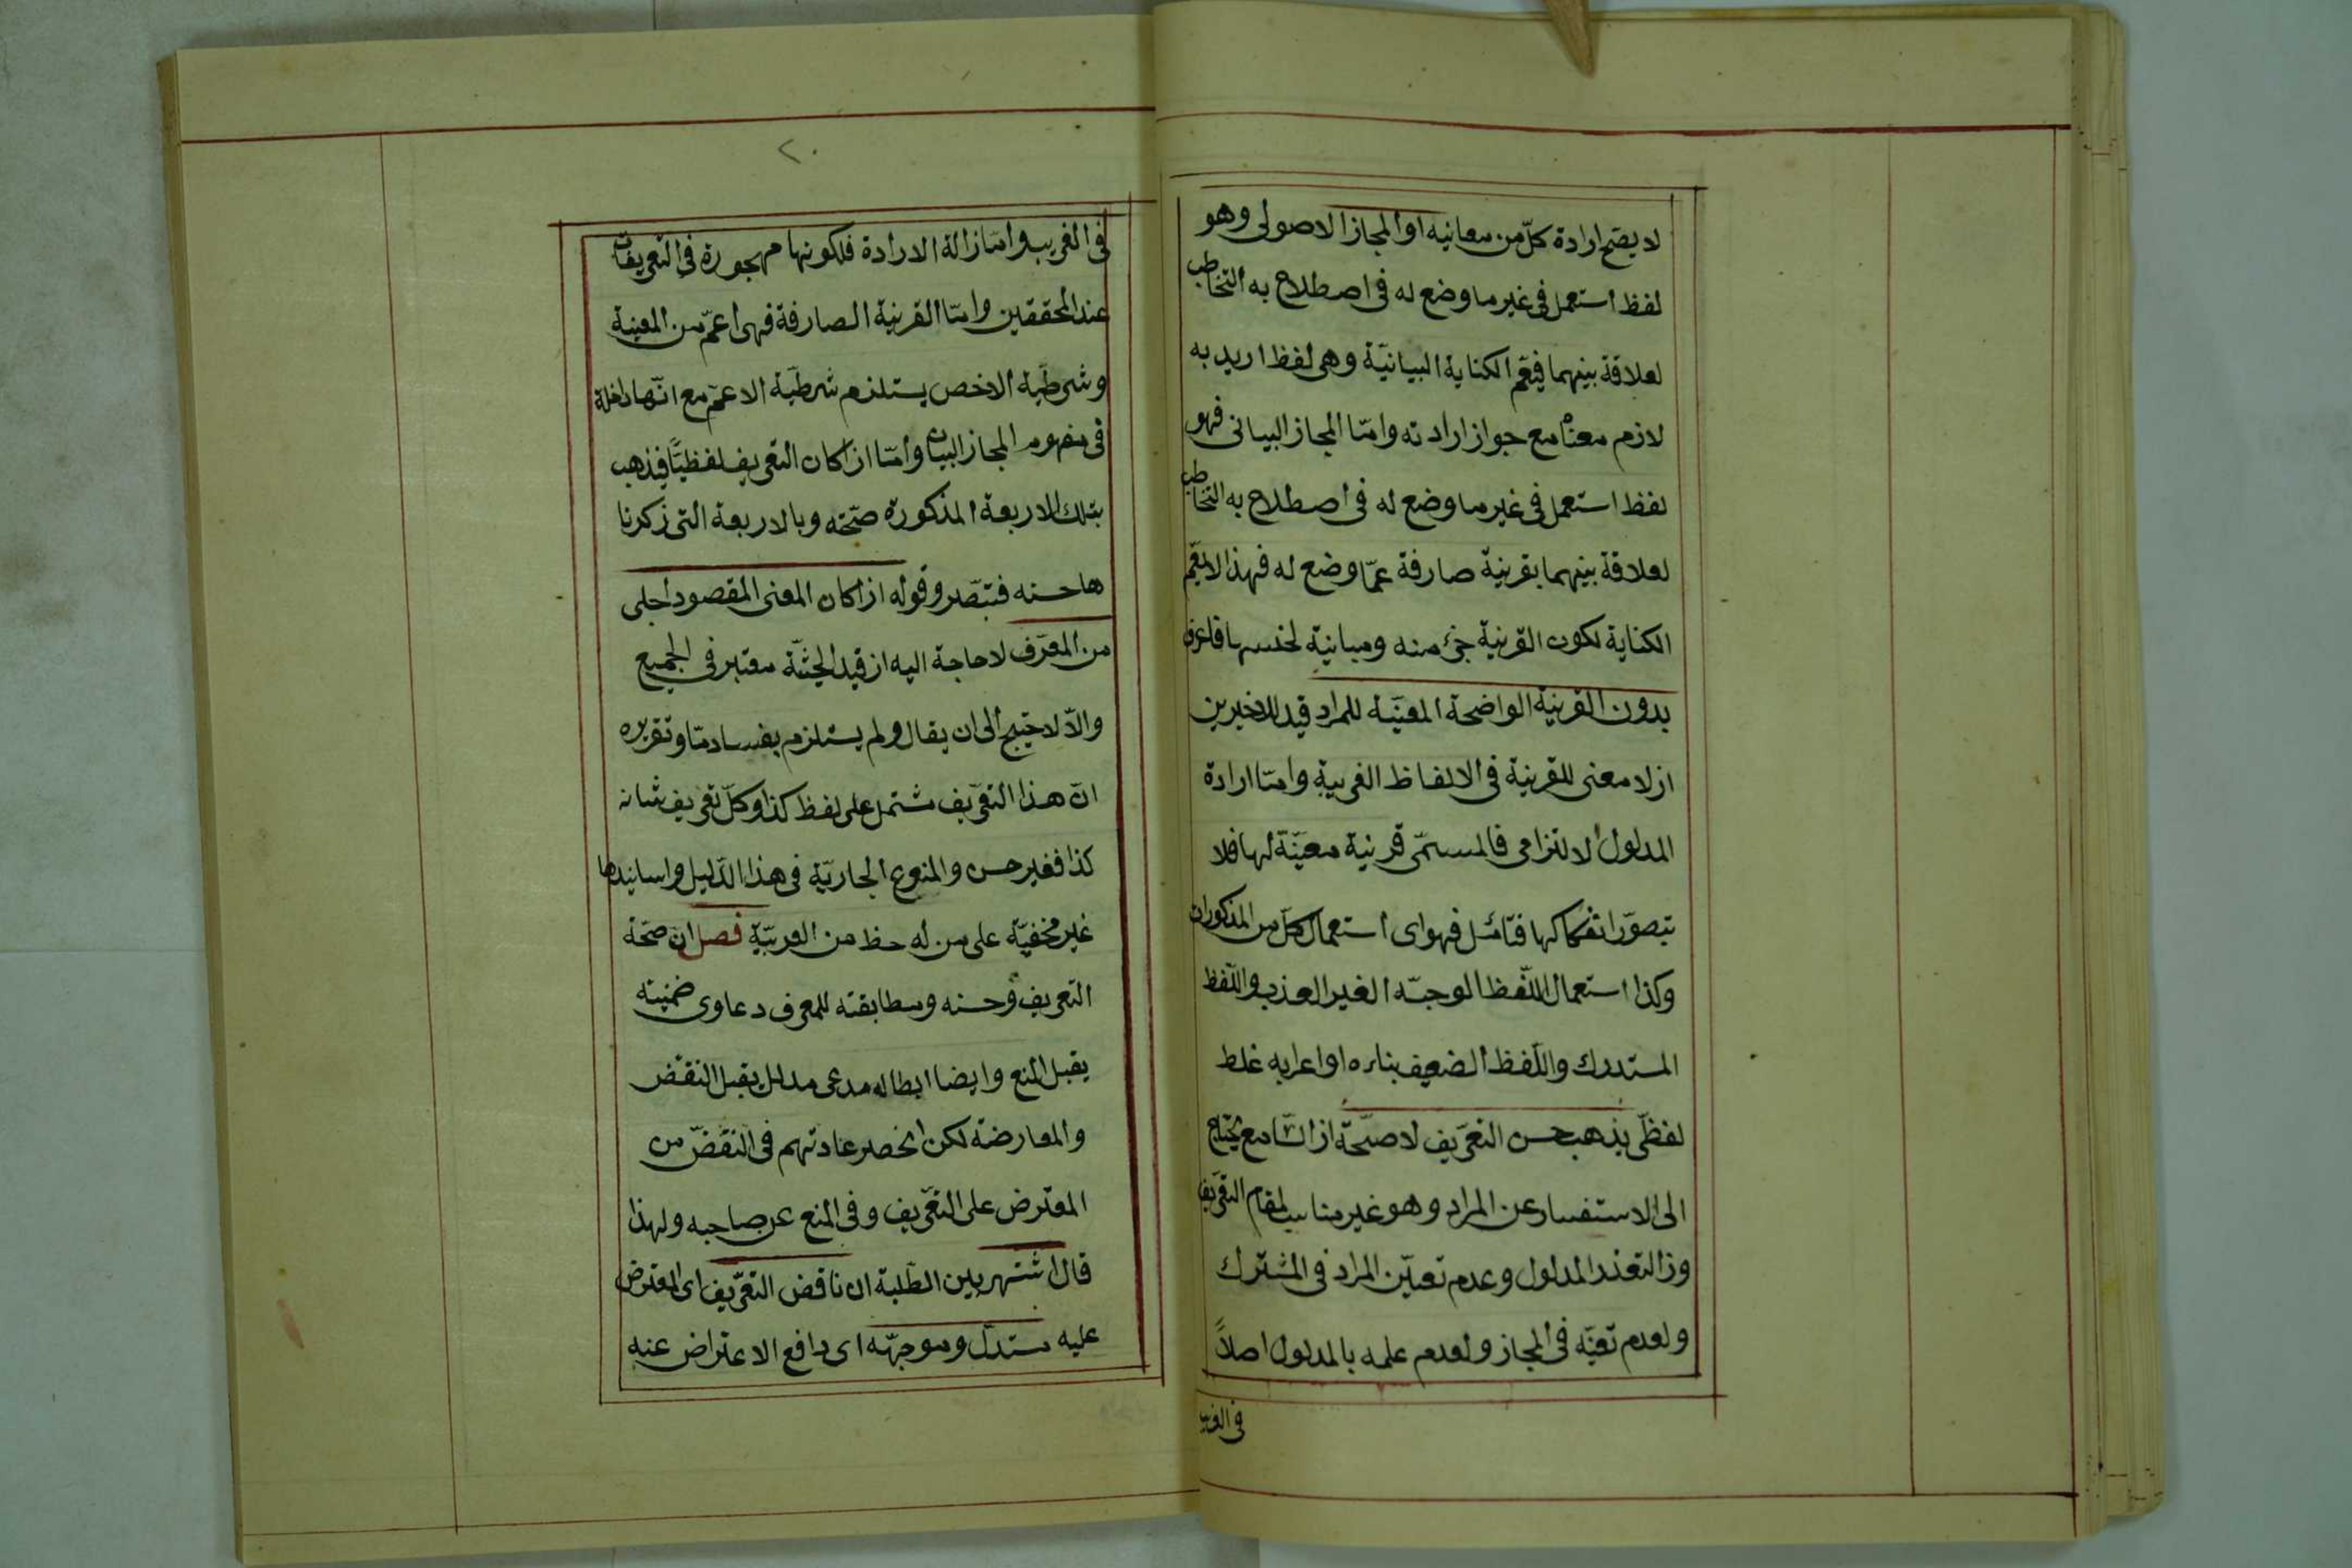 لا يصح ارادة كلّ من معانيه او المجاز الاصولى وهو
لفظ استعمل فى غير ما وضع له فى اصطلاح به التخاطب
لعلاقة بينهما فيعمّ الكناية البيانيّة وهى لفظ اريد به
لازم معناه مع جواز ارادته وامّا المجاز البيانى فهو
لفظ استعمل فى غير ما وضع له فى اصطلاح به التخاطب
لعلاقة بينهما بقرينة صارفة عمّا وضع له فهذا لا يعمّ
الكناية لكون القرينة جزء منه ومباينة لجنسها فاعرف
بدون القرينة الواضحة المعيّنة للمراد قيد للاخيرين
اذ لا معنى للقرينة فى الالفاظ الغريبة وامّا ارادة
المدلول الالتزامى فالمسمّى قرينة معيّنة لها فلا
يتصوّر انفكاكها فتامّل فهو اى استعمال كلّ من المذكورات
وكذا استعمال اللّفظ الوجبّه الغير العذب واللّفظ
المستدرك واللّفظ الضعيف بناءه او اعرابه غلط
لفظىّ يذهب حسن التعريف لا صحّته اذ السّامع يحتاج
الى الاستفسار عن المراد وهو غير مناسب لمقام التعريف
وذا لتعذر المدلول وعدم تعيّن المراد فى المشترك
ولعدم تعيّنه فى المجاز ولعدم علمه بالمدلول اصلاً
فى الغريب
٢٠
فى الغريب وامّا زالة الارادة فلكونها مهجورة فى التعريفات
عند المحققين وامّا القرينة الصارفة فهى اعمّ من المعينة
وشرطيّة الاخص يستلزم شرطيّة الاعمّ مع انّها داخلة
فى مفهوم المجاز البيان وامّا اذا كان التعريف لفظيّا فيذهب
بتلك الاربعة المذكورة صحّته وبالاربعة التى ذكرنا
ها حسنه فتبصّر وقوله اذا كان المعنى المقصود اجلى
من المعرّف لا حاجة اليه اذ قيد الحيثيّة معتبر فى الجميع
والاّ لاحتيج الى ان يقال ولم يستلزم بفساد مّا وتقريره
انّ هذا التعريف مشتمل على لفظ كذا وكلّ تعريف شانه
كذا فغير حسن والمنوع الجاريّة فى هذا الدّليل واسانيدها
غير مخفيّة على من له حظ من العربيّة فصل ان صحّة
التعريف وحسنه ومطابقته للمعرف دعاوى ضمنيته
يقبل المنع وايضا ابطاله مدعى مدلل يقبل النقض
والمعارضة لكن انحصر عادتهم فى النقضّ من
المعترض على التعريف وفى المنع عن صاحبه ولهذا
قال اشتهر بين الطّلبة ان ناقض التعريف اى المعترض
عليه مستدلّ وموجّهه اى دافع الاعتراض عنه